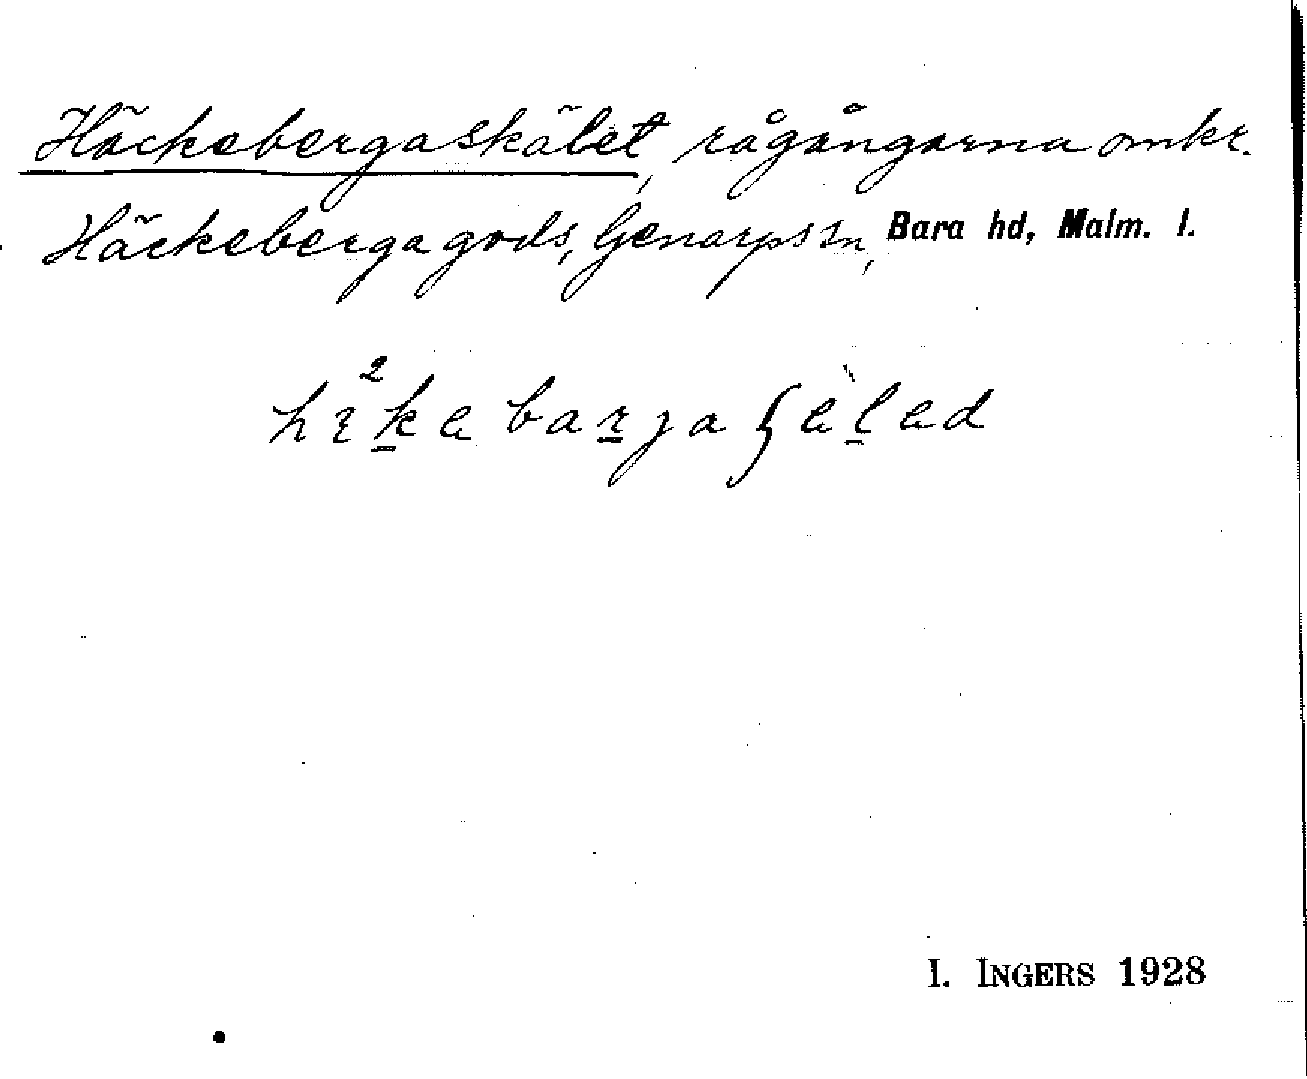 Häckebergaskälet, rågångarna omkr.
Häckeberga gods, Genarps sn, Bara hd, Malm. l.
I. INGERS 1928